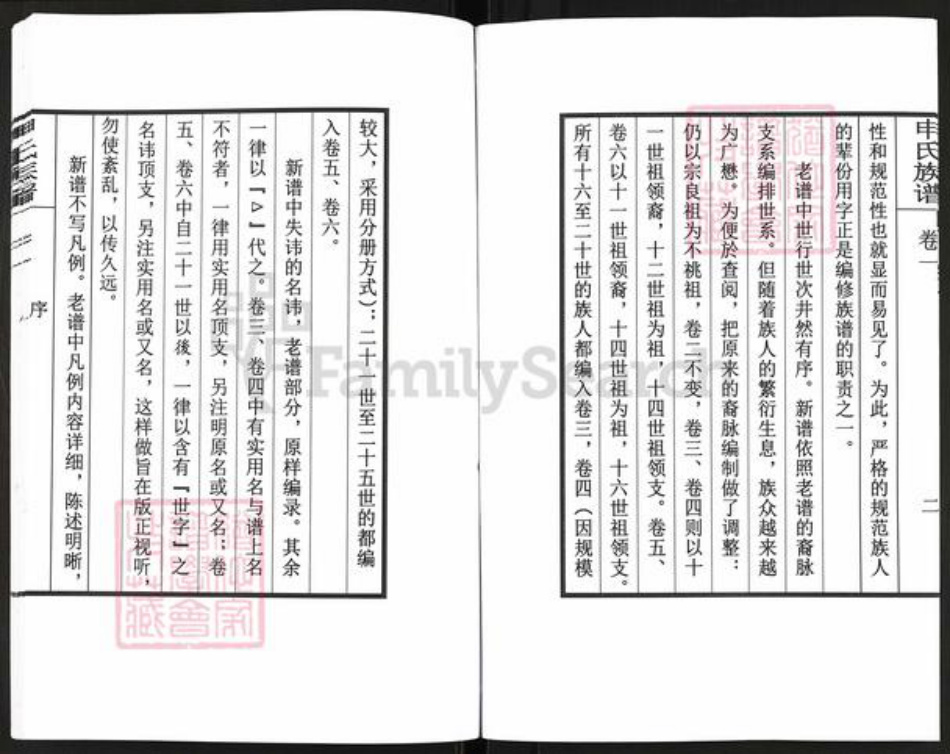 申氏族谱
卷一
二
性和规范性也就显而易见了。为此，严格的规范族人
的辈份用字正是编修族谱的职责之一。
老谱中世行世次井然有序。新谱依照老谱的裔脉
支系编排世系。但随着族人的繁衍生息，族众越来越
为广懋。为便於查阅，把原来的裔脉编制做了调整：
仍以宗良祖为不祧祖，卷二不变，卷三、卷四则以十
一世祖领裔，十二世祖为祖，十四世祖领支。卷五、
卷六以十一世祖领裔，十四世祖为祖，十六世祖领支。
所有十六至二十世的族人都编入卷三，卷四（因规模
较大，采用分册方式）；二十一世至二十五世的都编
入卷五、卷六。
新谱中失讳的名讳，老谱部分，原样编录。其余
一律以『△』代之。卷三、卷四中有实用名与谱上名
不符者，一律用实用名顶支，另注明原名或又名；卷
五、卷六中自二十一世以後，一律以含有『世字』之
名讳顶支，另注实用名或又名，这样做旨在版正视听，
勿使紊乱，以传久远。
新谱不写凡例。老谱中凡例内容详细，陈述明晰，
序
FamilySearch